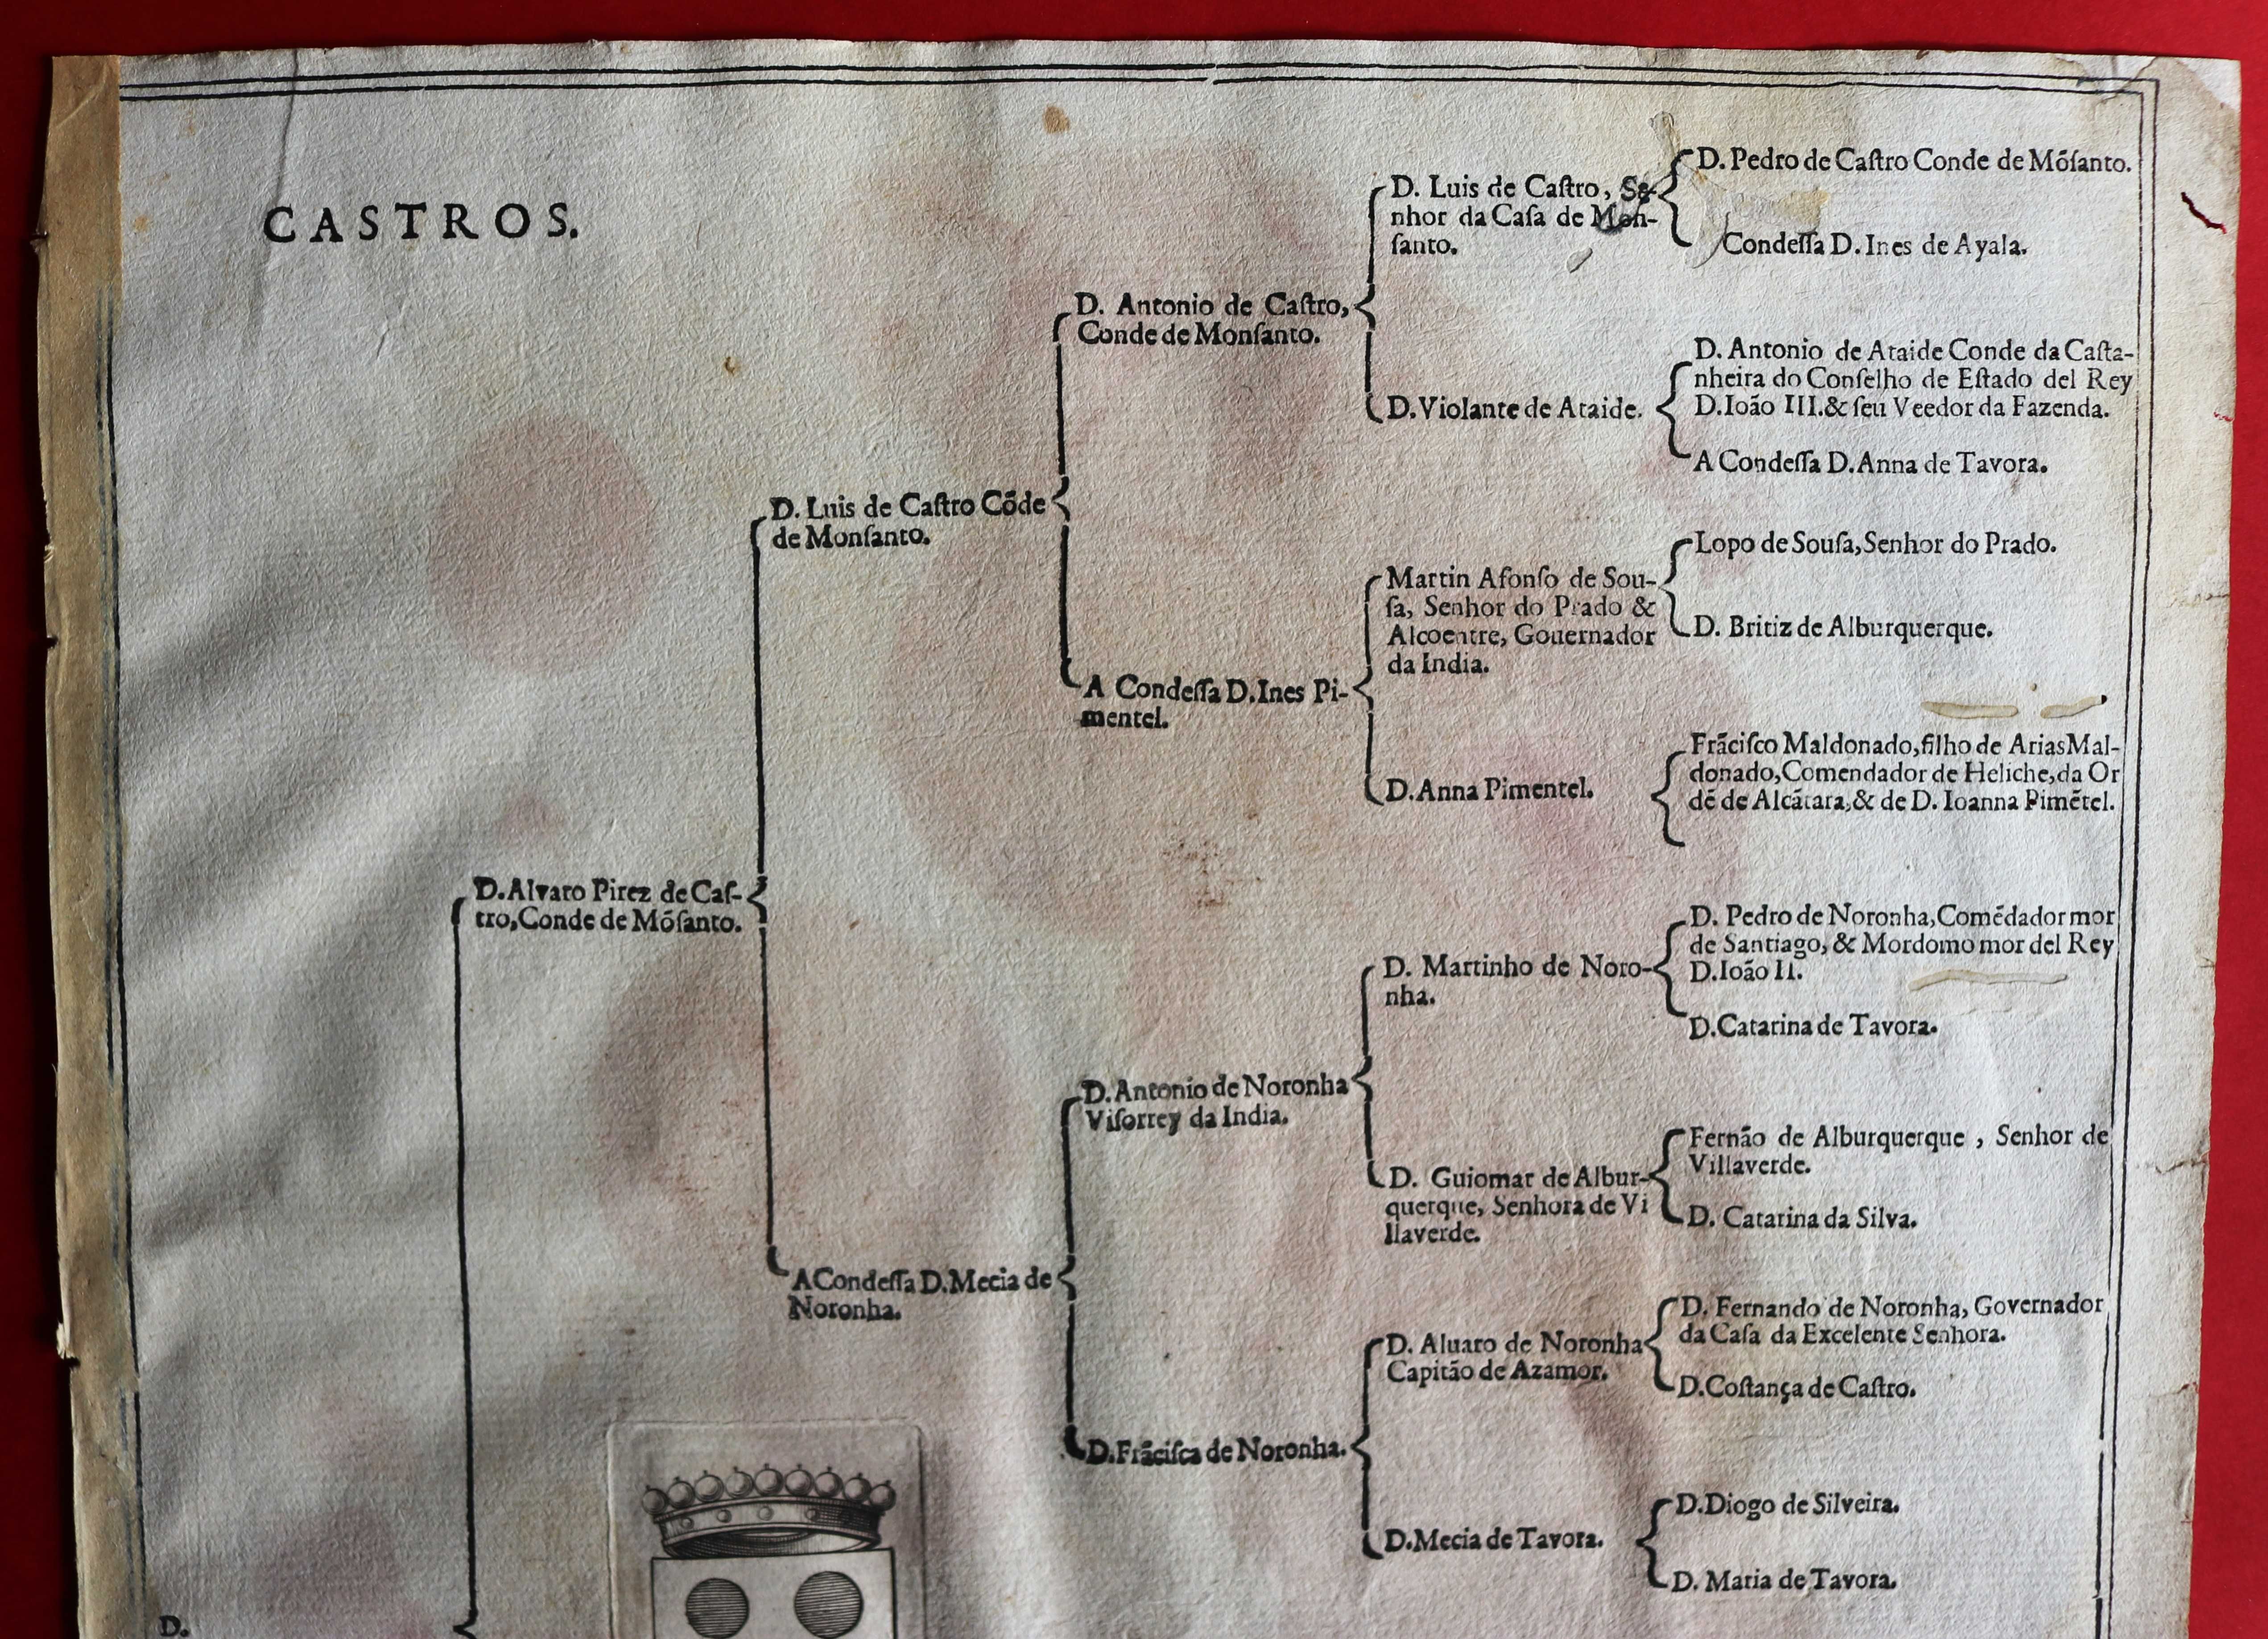 CASTROS.
D. Pedro de Caſtro Conde de Mõſanto.
D. Luis de Caſtro, Se-
nhor da Caſa de Mon-
ſanto.
Condeſſa D. Ines de Ayala.
D. Antonio de Caſtro,
Conde de Monſanto.
D. Antonio de Ataide Conde da Caſta-
nheira do Conſelho de Eſtado del Rey
D. Ioão III. & ſeu Veedor da Fazenda.
D. Violante de Ataide.
A Condeſſa D. Anna de Tavora.
D. Luis de Caſtro Cõde
de Monſanto.
Lopo de Souſa, Senhor do Prado.
Martin Afonſo de Sou-
ſa, Senhor do Prado &
Alcoentre, Gouernador
da India.
D. Britiz de Alburquerque.
A Condeſſa D. Ines Pi-
mentel.
Frãciſco Maldonado, filho de Arias Mal-
donado, Comendador de Heliche, da Or
dẽ de Alcãtara, & de D. Ioanna Pimẽtel.
D. Anna Pimentel.
D. Alvaro Pirez de Caſ-
tro, Conde de Mõſanto.
D. Pedro de Noronha, Comẽdador mor
de Santiago, & Mordomo mor del Rey
D. Ioão II.
D. Martinho de Noro-
nha.
D. Catarina de Tavora.
D. Antonio de Noronha
Viſorrey da India.
Fernão de Alburquerque , Senhor de
Villaverde.
D. Guiomar de Albur-
querque, Senhora de Vi
llaverde.
D. Catarina da Silva.
A Condeſſa D. Mecia de
Noronha.
D. Fernando de Noronha, Governador
da Caſa da Excelente Senhora.
D. Aluaro de Noronha
Capitão de Azamor.
D. Coſtança de Caſtro.
D. Frãciſca de Noronha.
D. Diogo de Silveira.
D. Mecia de Tavora.
D. Maria de Tavora.
D.